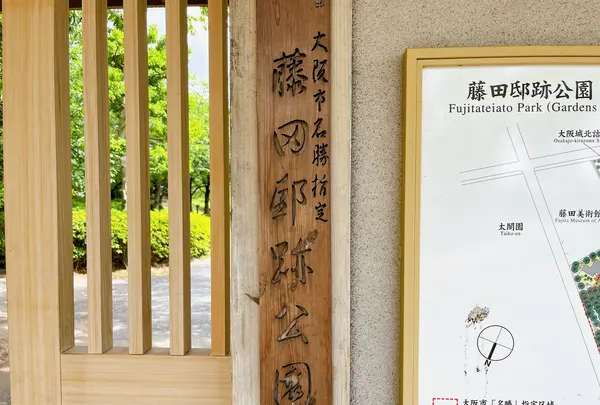 大阪市名勝指定
藤田邸跡公園
藤田邸跡公園
Fujitateiato Park (Gardens
大阪城北詰
Osakajo-kitazume S
藤田美術館
Fujita Museum of A
太閤園
Taiko-en
大阪市「名勝」指定区域